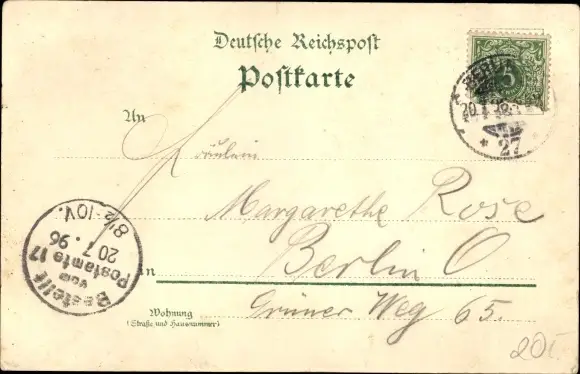 Deutsche Reichspost
Postkarte
BERLIN
5
20 7 96
* 27
An
Fräulein
Margarethe Rose
in Berlin O
Wohnung Grüner Weg 65.
(Straße und Hausnummer)
Bestellt
vom
Postamte 17
20 7. 96
8 1/2-10V.
20.-